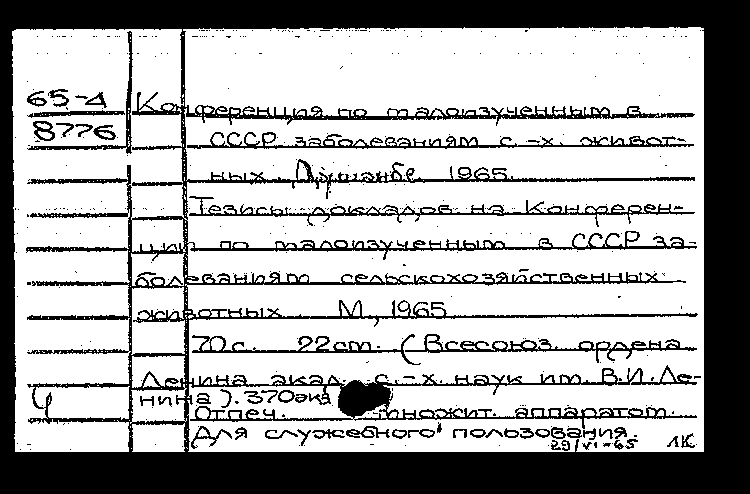 65-4 Конференция по малоизученным в
8776 СССР заболеваниям с.-х. живот-
ных. Душанбе. 1965.
Тезисы докладов на Конферен-
ции по малоизученным в СССР за-
болеваниям сельскохозяйственных
животных. М., 1965
70 с. 22 cm. (Всесоюз. ордена
Ленина акад. с.-х. наук им. В.И. Ле-
нина). 370 экз
Отпеч. множит. аппаратом.
Для служебного пользования.
29/VI-65 1К